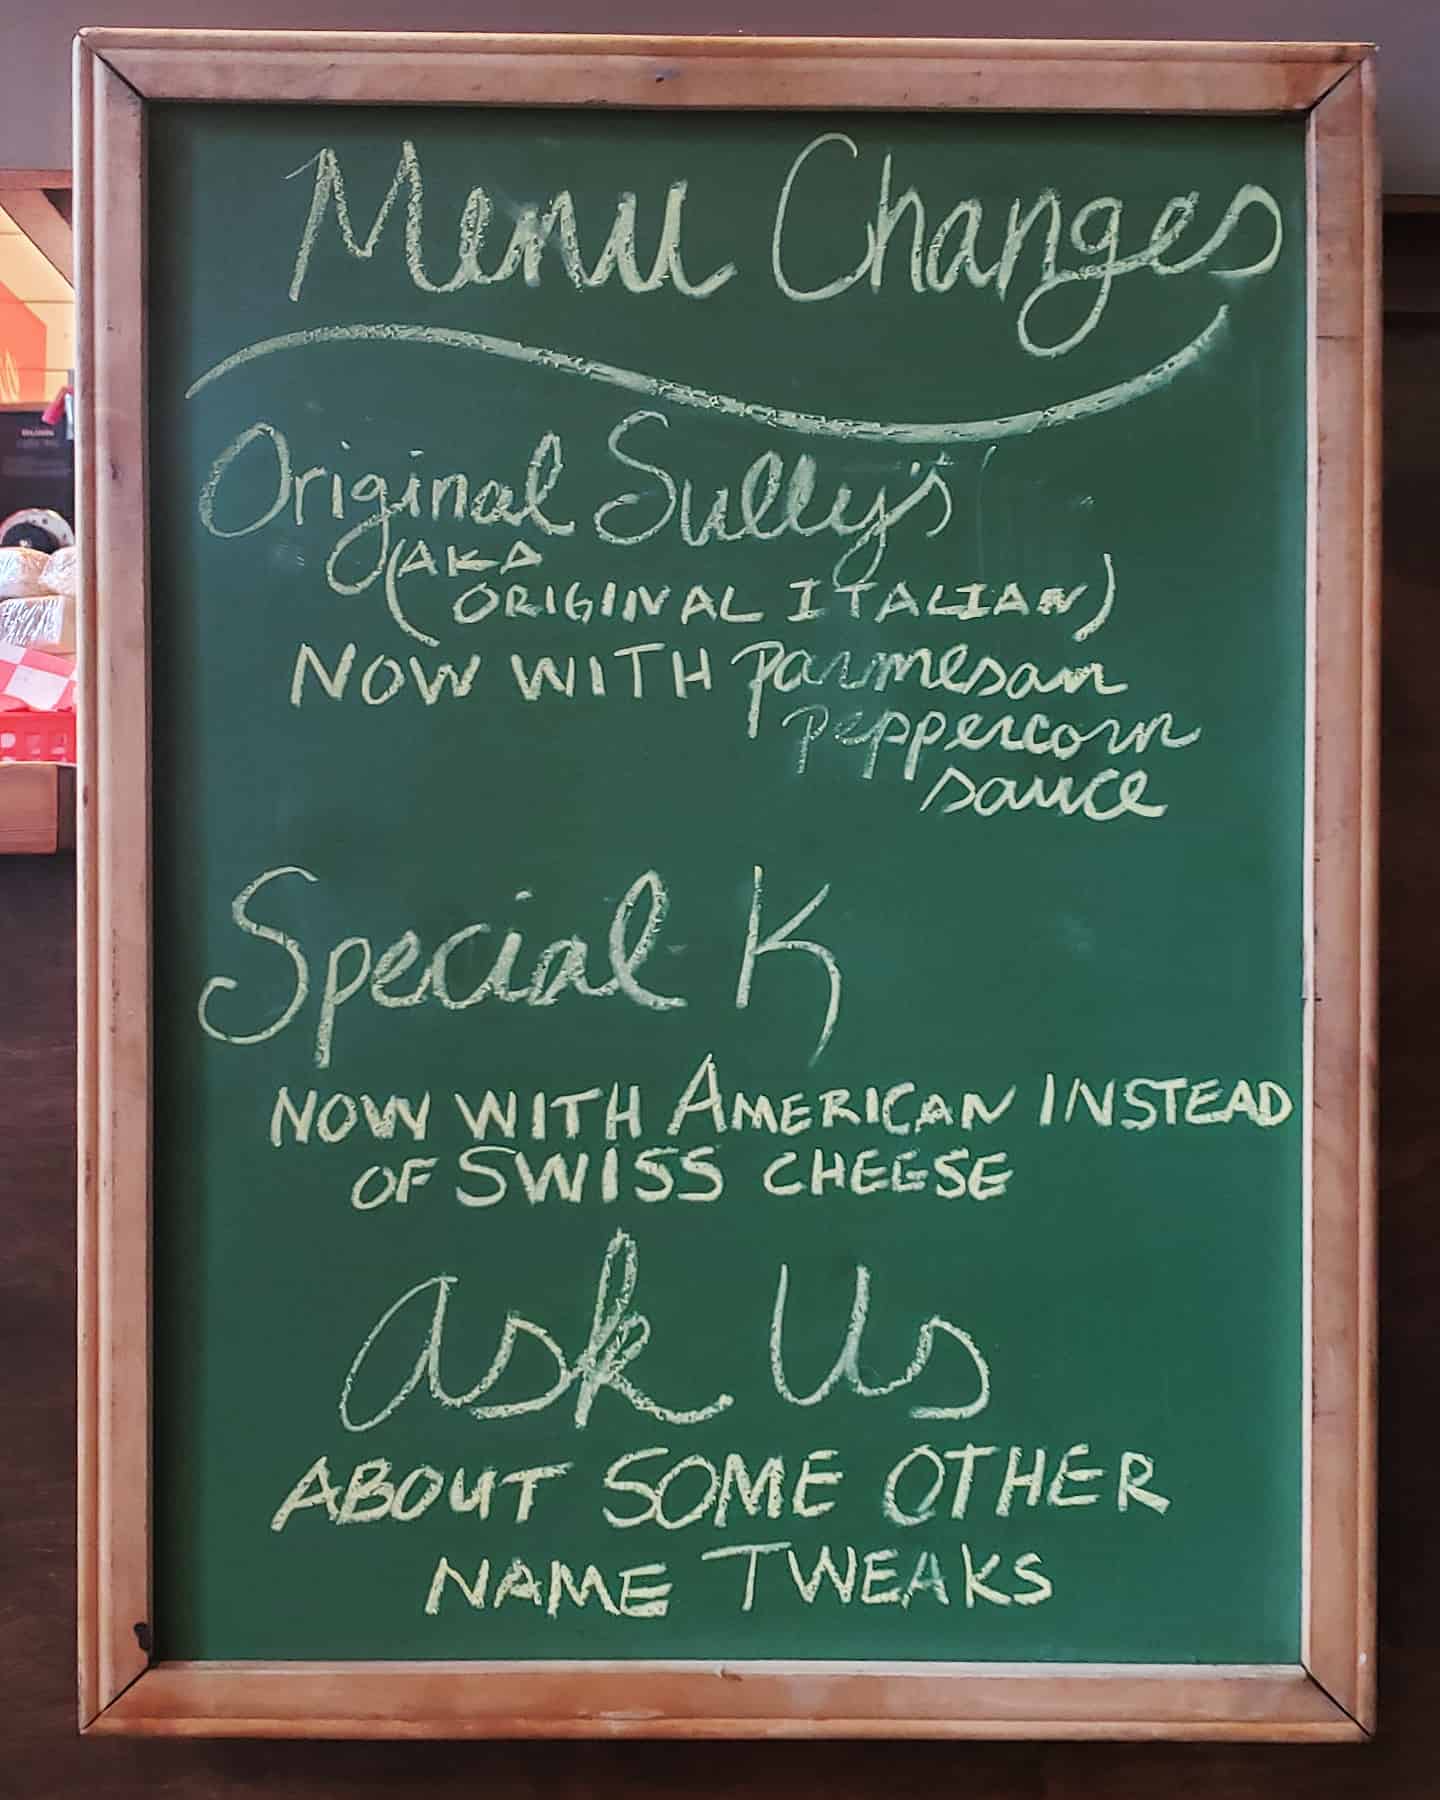 Menu Changes
Original Sully's
(AKA
ORIGINAL ITALIAN)
NOW WITH Parmesan
Peppercorn
sauce
Special K
NOW WITH AMERICAN INSTEAD
OF SWISS CHEESE
Ask Us
ABOUT SOME OTHER
NAME TWEAKS
BUNN